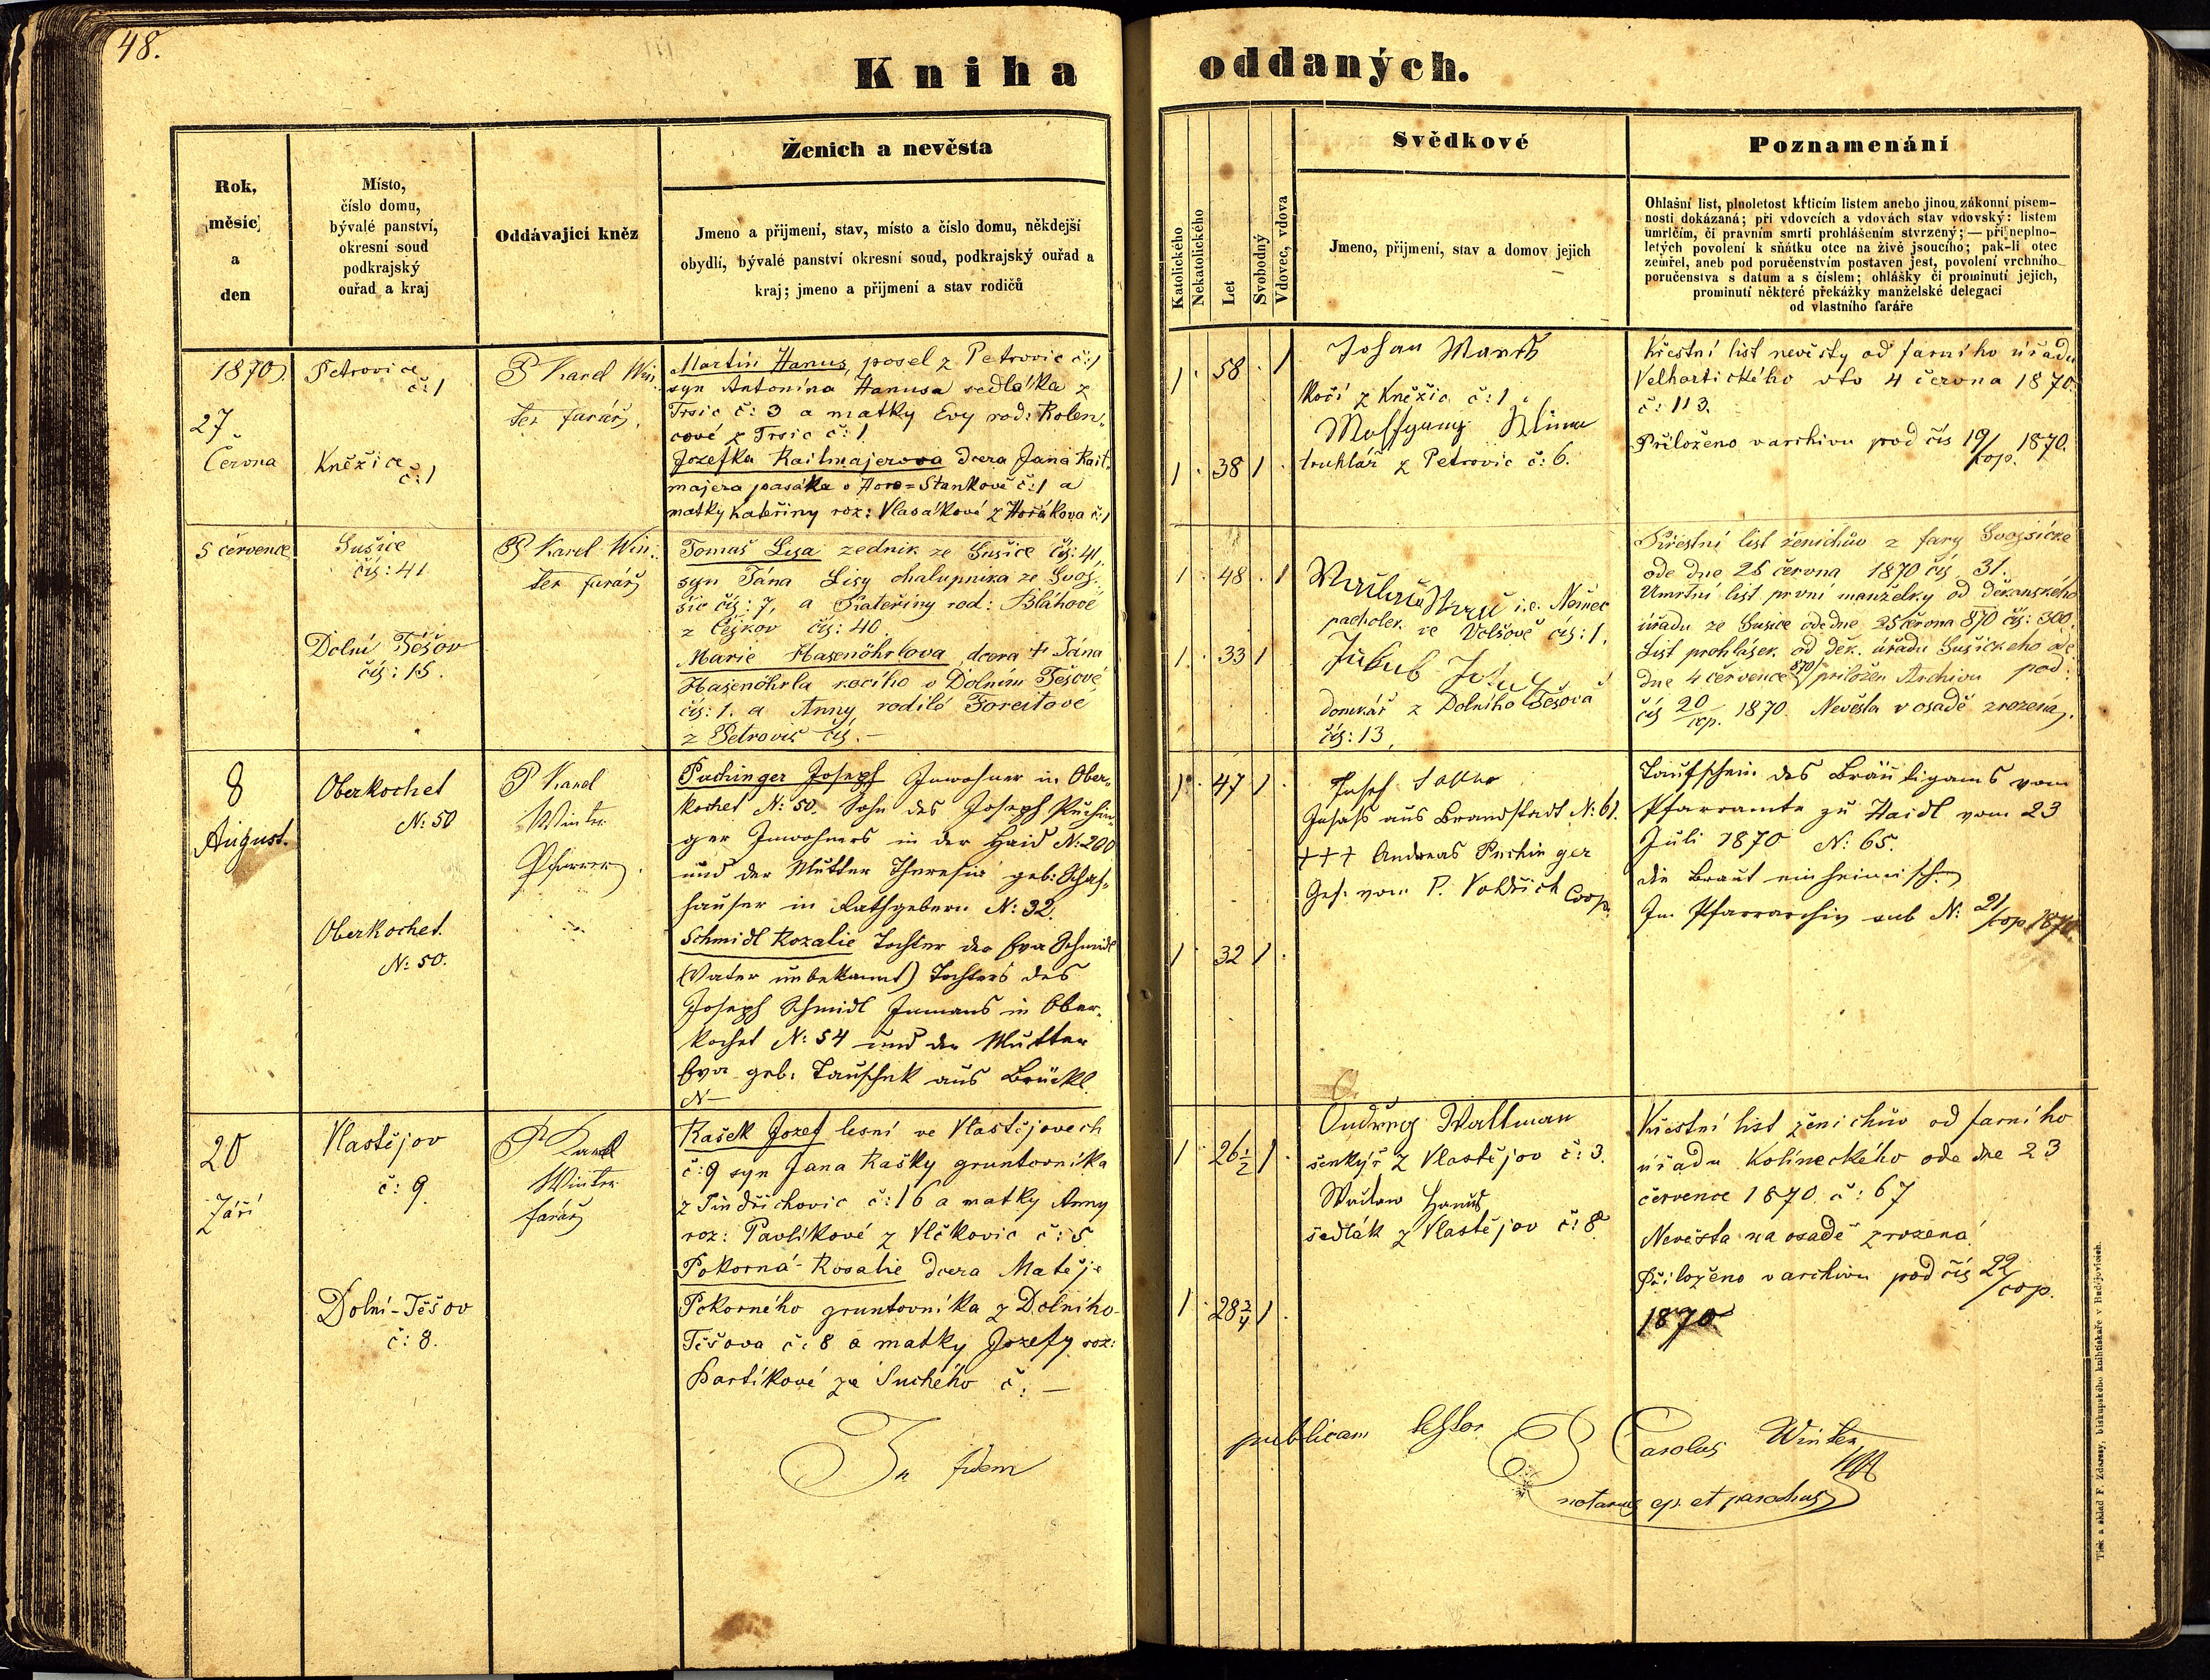 48.
Kniha oddaných.
Rok,
měsíc
a
den
Místo,
číslo domu,
bývalé panství,
okresní soud
podkrajský
ouřad a kraj
Oddávající kněz
Ženich a nevěsta
Jmeno a přijmení, stav, místo a číslo domu, někdejší
obydlí, bývalé panství okresní soud, podkrajský ouřad a
kraj; jmeno a přijmení a stav rodičů
Katolického
Nekatolického
Let
Svobodný
Vdovec, vdova
Svědkové
Jmeno, přijmení, stav a domov jejich
Poznamenání
Ohlašní list, plnoletost křticím listem anebo jinou zákonní písem-
nosti dokázaná; při vdovcích a vdovách stav vdovský: listem
umrlčím, či právním smrti prohlášením stvrzený; — při neplno-
letých povolení k sňátku otce na živě jsoucího; pak-li otec
zemřel, aneb pod poručenstvím postaven jest, povolení vrchního
poručenstva s datum a s číslem; ohlášky či prominutí jejich,
prominutí některé překážky manželské delegací
od vlastního faráře
1870
27
Června
Petrovice
č: 1
Kněžice
č: 1
P Karel Win
ter farář
Martin Hanus, posel z Petrovic č: 1
syn Antonína Hanusa sedláka z
Trsic č: 3 a matky Evy rod: Kolen
cové z Trsic č: 1
Jozefka Raitmajerova dcera Jana Rait
majera pasáka v Hore=Stankově č: 1 a
matky Kateřiny roz: Vlasákové z Horákova č: 1
1 58 1
1 38 1
Johan
Kočí z Kněžic č: 1
Wolfgang Klima
truhlář z Petrovic č: 6.
Křestní list nevěsty od farního úřadu
Velhartického dto 4 června 1870
č: 113.
Přiloženo v archivu pod čís 19/cop. 1870.
5 července
Sušice
čís: 41
Dolní Těšov
čís: 15.
P Karel Win
ter farář
Tomaš Lisa zedník ze Sušice čís: 41,
syn Jána Lisy chalupníka ze Svoj
šic čís: 7, a Kateřiny rod: Bláhové
z Čejkov čís: 40.
Marie Hasenöhrlova, dcera † Jána
Hasenöhrla kočího v Dolním Těšově
čís: 1. a Anny rodilé Foreitové
z Petrovic čís. —
1 48 1
1 33 1
i.e. Němec
pacholek ve Volšově čís: 1.
Jakub
domkář z Dolního Těšova
čís: 13,
Křestní list ženichův z fary Svojšické
ode dne 25 června 1870 čís 31.
Umrtní list první manželky od děkanského
úřadu ze Sušice ode dne 25 června 870 čís: 300.
List prohlášek od děk. úřadu Sušického ode
dne 4 července 870 přiložen Archivu pod
čís 20/cop. 1870. Nevěsta v osadě zrozená.
8
August.
Oberkochet
N: 50
Oberkochet.
N: 50.
P Karel
Winter
Pfarrer
Puchinger Joseph Inwohner in Ober-
kochet N: 50. Sohn des Joseph Puchin
ger Inwohners in der Haid N: 200
und der Mutter Theresia geb: Schaf-
hauser in Rathgebern N: 32.
Schmidl Rozalie Tochter der Eva Schmidl
(Vater unbekannt) Tochters des
Joseph Schmidl Inmans in Ober-
kochet N: 54 und der Mutter
Eva geb: Tauschek aus Brückl
N —
1 47 1
1 32 1
Josef
Insass aus Brandstadt N: 61.
+++ Andreas Puchinger
Gef. vom P. Voldřich Coop.
Taufschein des Bräutigams vom
Pfarramte zu Haidl vom 23
Juli 1870 N: 65.
die Braut einheimisch
Im Pfarrarchiv sub N: 21/cop 1870
20
Září
Vlastějov
č: 9
Dolní-Těšov
č: 8.
P Karel
Winter
farář
Kašek Jozef lesní ve Vlastějovech
č: 9 syn Jana Kašky gruntovníka
z Jindřichovic č: 16 a matky Anny
roz: Pavlíkové z Vlčkovic č: 5
Pokorná Rosalie dcera Matěje
Pokorného gruntovníka z Dolního
Těšova č: 8 a matky Jozefy roz:
Bartíkové ze Suchého č. —
1 26 1/2 1
1 28 3/4 1
Ondřeg Waltman
šenkýř z Vlastějov č: 3.
Waclaw Hanus
sedlák z Vlastějov č: 8.
Křestní list ženichův od farního
úřadu Kolineckého ode dne 23
července 1870 č: 67
Nevěsta na osadě zrozená
Přiloženo v archivu pod čís 22/cop.
1870
In fidem publicam testor P Carolus Winter
notarius ep. et parochus
Tisk a sklad F. Zdarssy, biskupského knihtiskaře v Budějovicích.